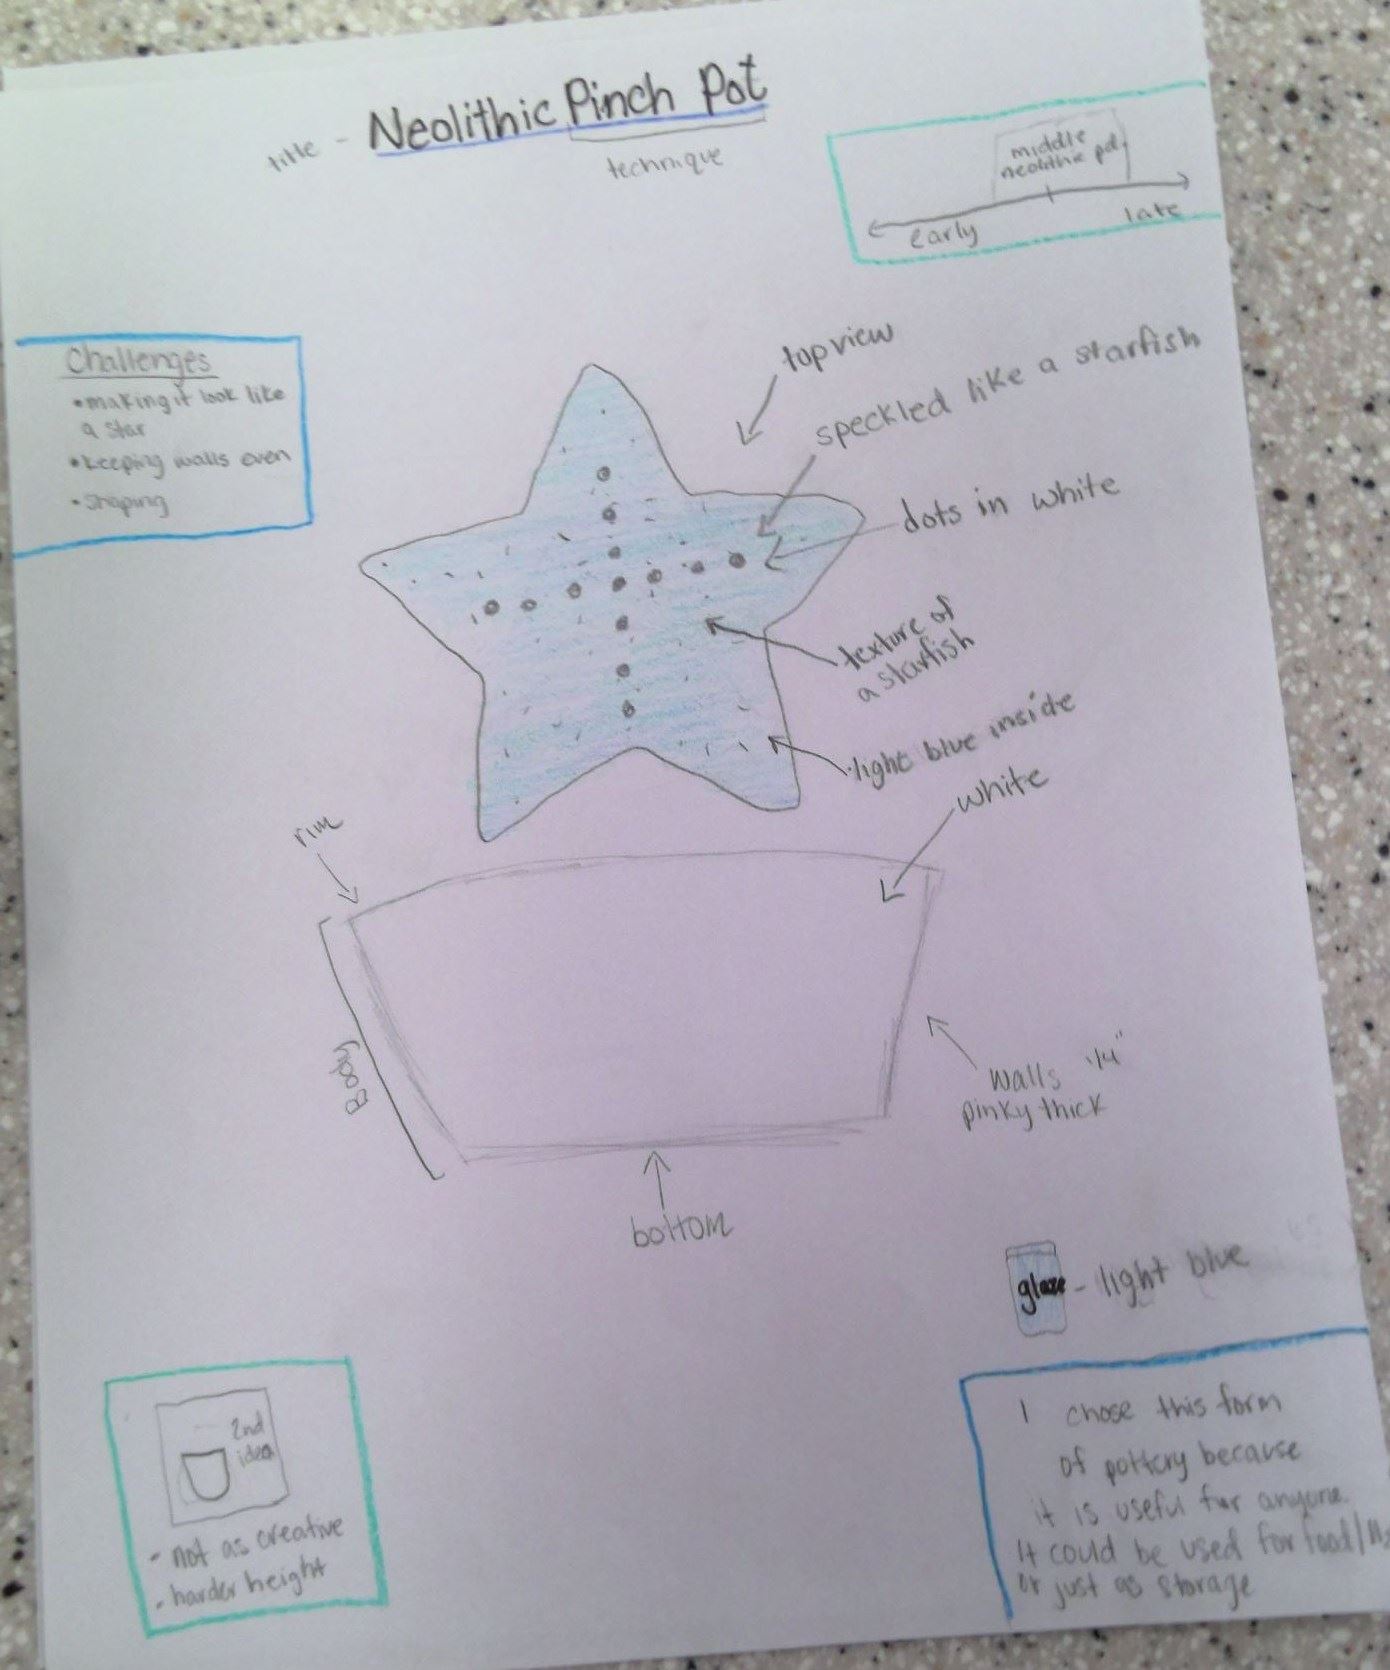 title - Neolithic Pinch Pot
technique
middle
neolithic pd.
early
late
Challenges
• making it look like
a star
• keeping walls even
• Shaping
top view
speckled like a starfish
dots in white
texture of
a starfish
light blue inside
white
rim
Body
walls 1/4"
pinky thick
bottom
glaze - light blue
2nd
idea
- not as creative
- harder height
I chose this form
of pottery because
it is useful for anyone.
It could be used for food/
or just as storage